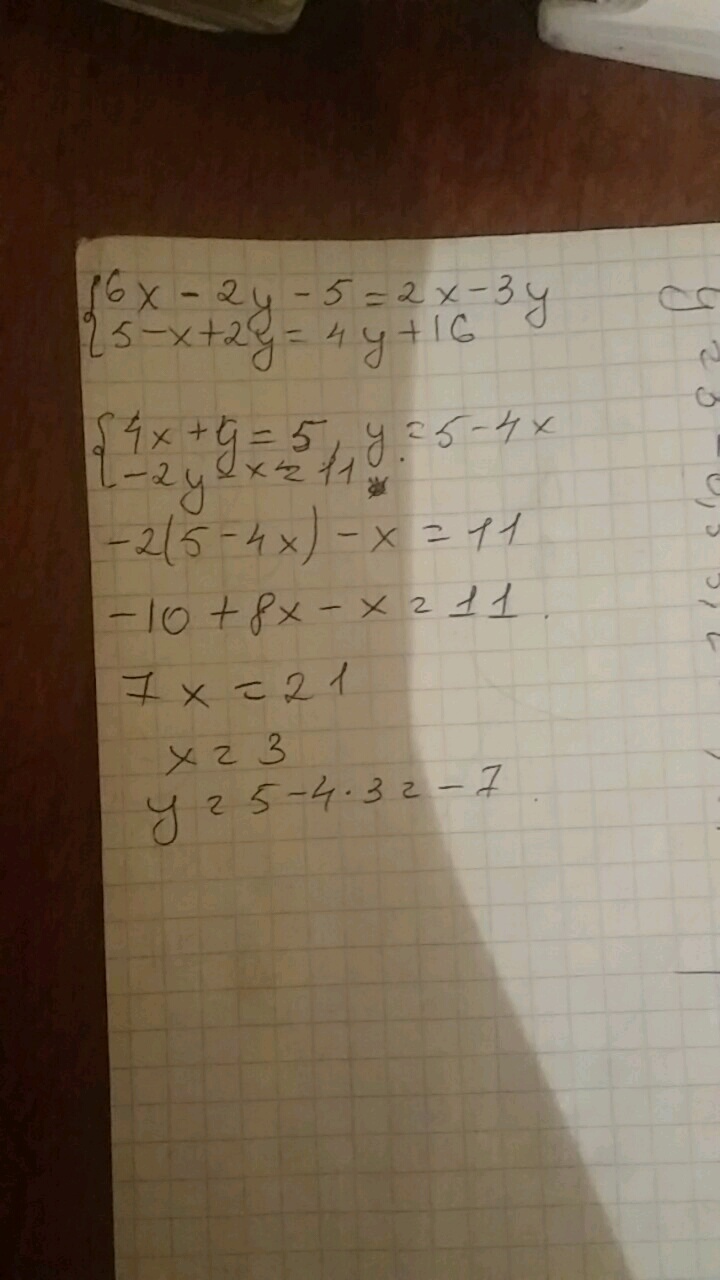 {6x - 2y - 5 = 2x - 3y
{5 - x + 2y = 4y + 16
{4x + y = 5, y = 5 - 4x
{-2y - x = 11
-2(5 - 4x) - x = 11
-10 + 8x - x = 11.
7x = 21
x = 3
y = 5 - 4 · 3 = -7.